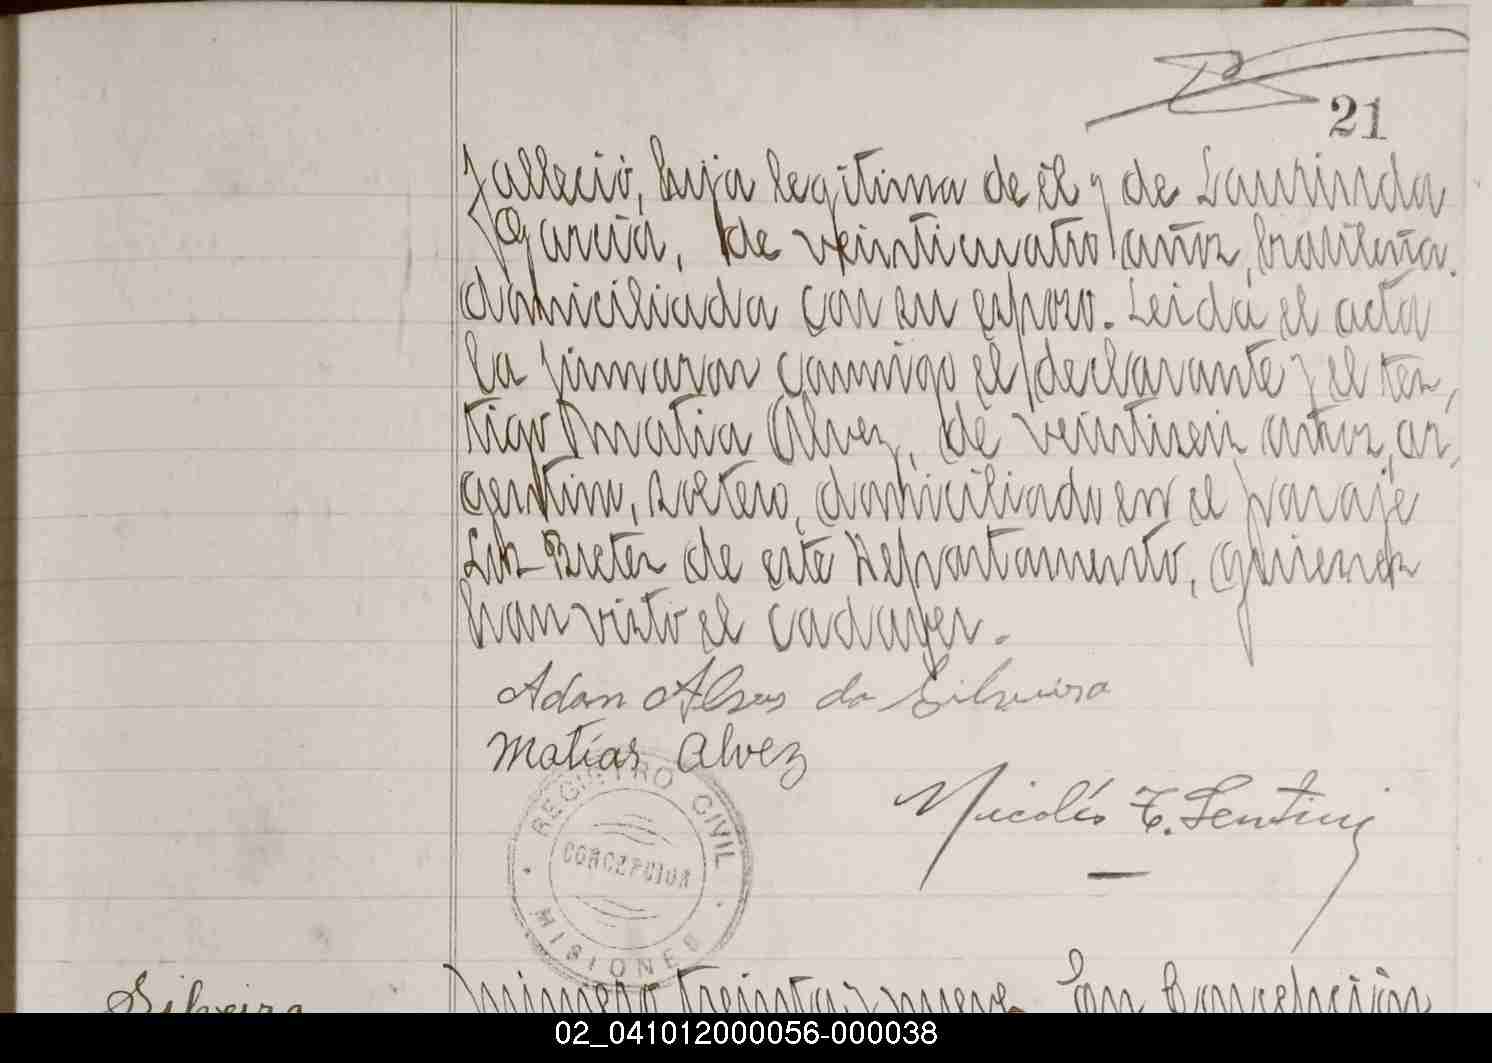 21
falleció, hija legítima de él y de Laurinda
García, de veinticuatro años, brasileña.
domiciliada con su esposo. Leida el acta
la firmaron conmigo el declarante y el tes,
tigo Matia Alvez, de veintiseis años, ar,
gentino, soltero, domiciliado en el paraje
de este Departamento, quienes
han visto el cadaver.
Adan Alves da Silveira
Matías Alvez
Nicolás T. Sentini
REGISTRO CIVIL
CONCEPCION
MISIONES
Silveira
Número treinta y nueve. En Concepción
02_041012000056-000038